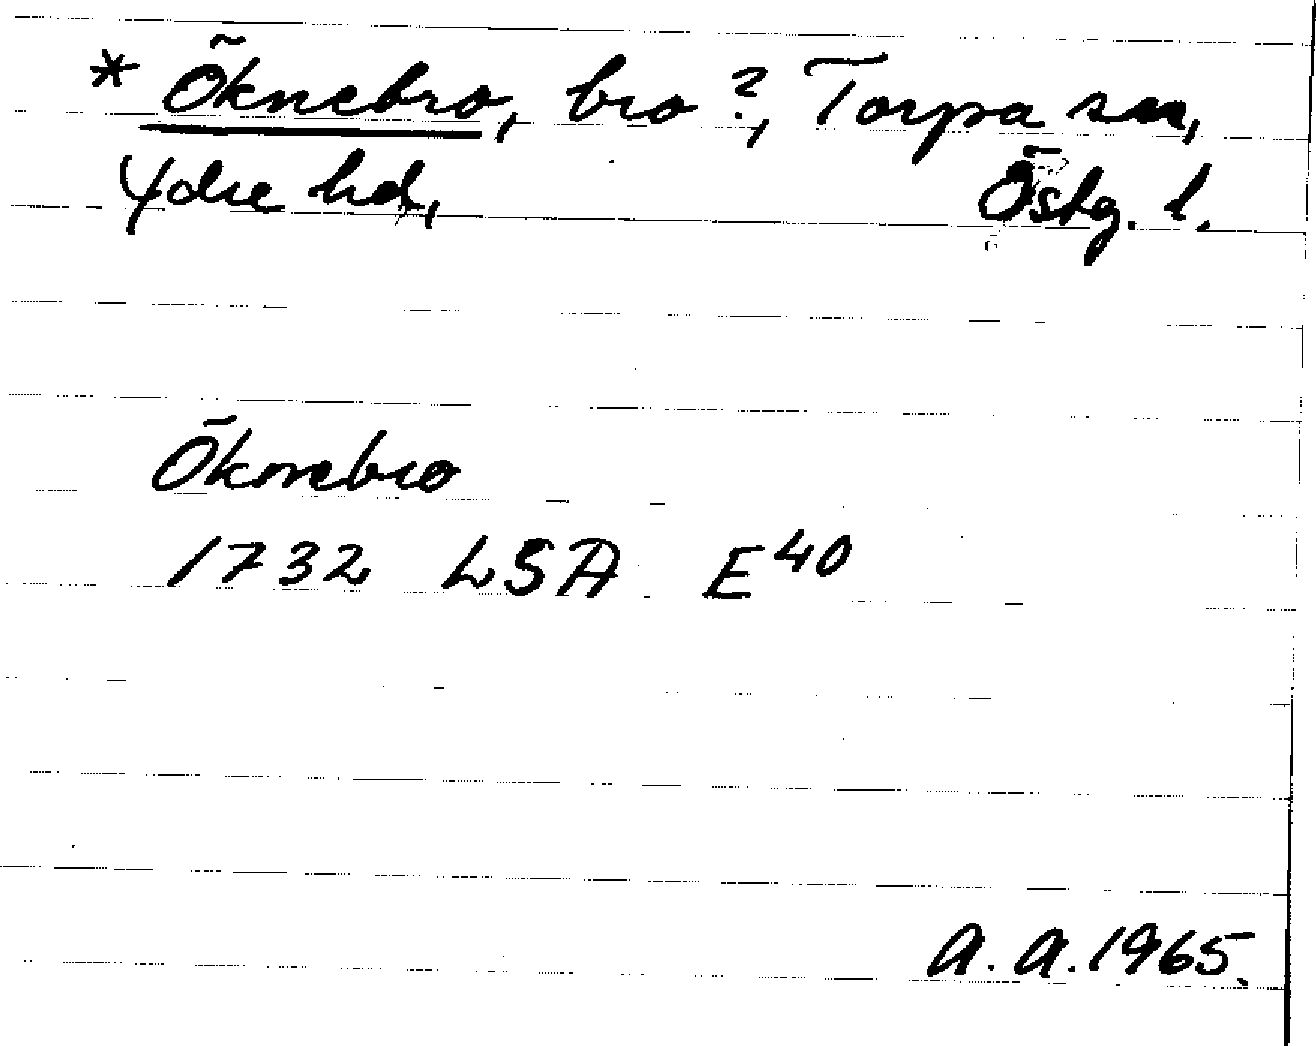 * Öknebro, bro?, Torpa sn,
Ydre hd, Östg. l.
Öknebro
1732 LSA E40
A. A. 1965.